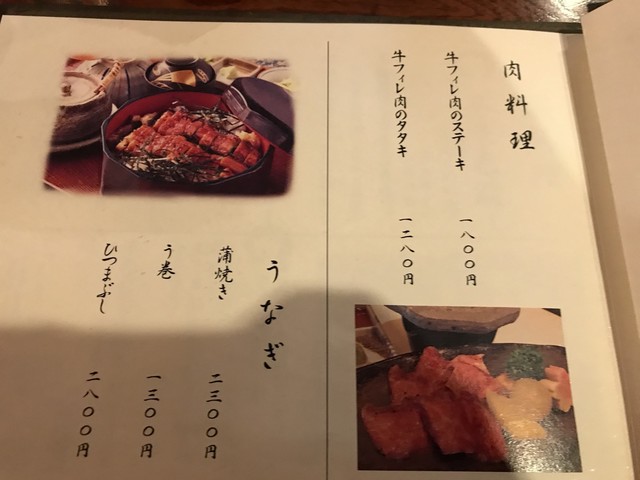 肉料理
牛フィレ肉のステーキ 一八〇〇円
牛フィレ肉のタタキ 一二八〇円
うなぎ
蒲焼き 二三〇〇円
う巻 一三〇〇円
ひつまぶし 二八〇〇円